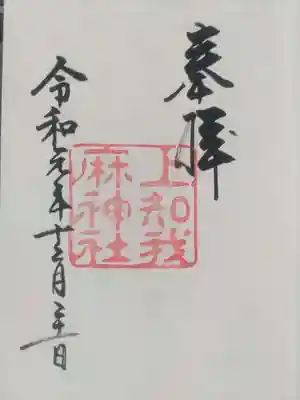 奉拝
上知我
麻神社
令和元年十二月 日